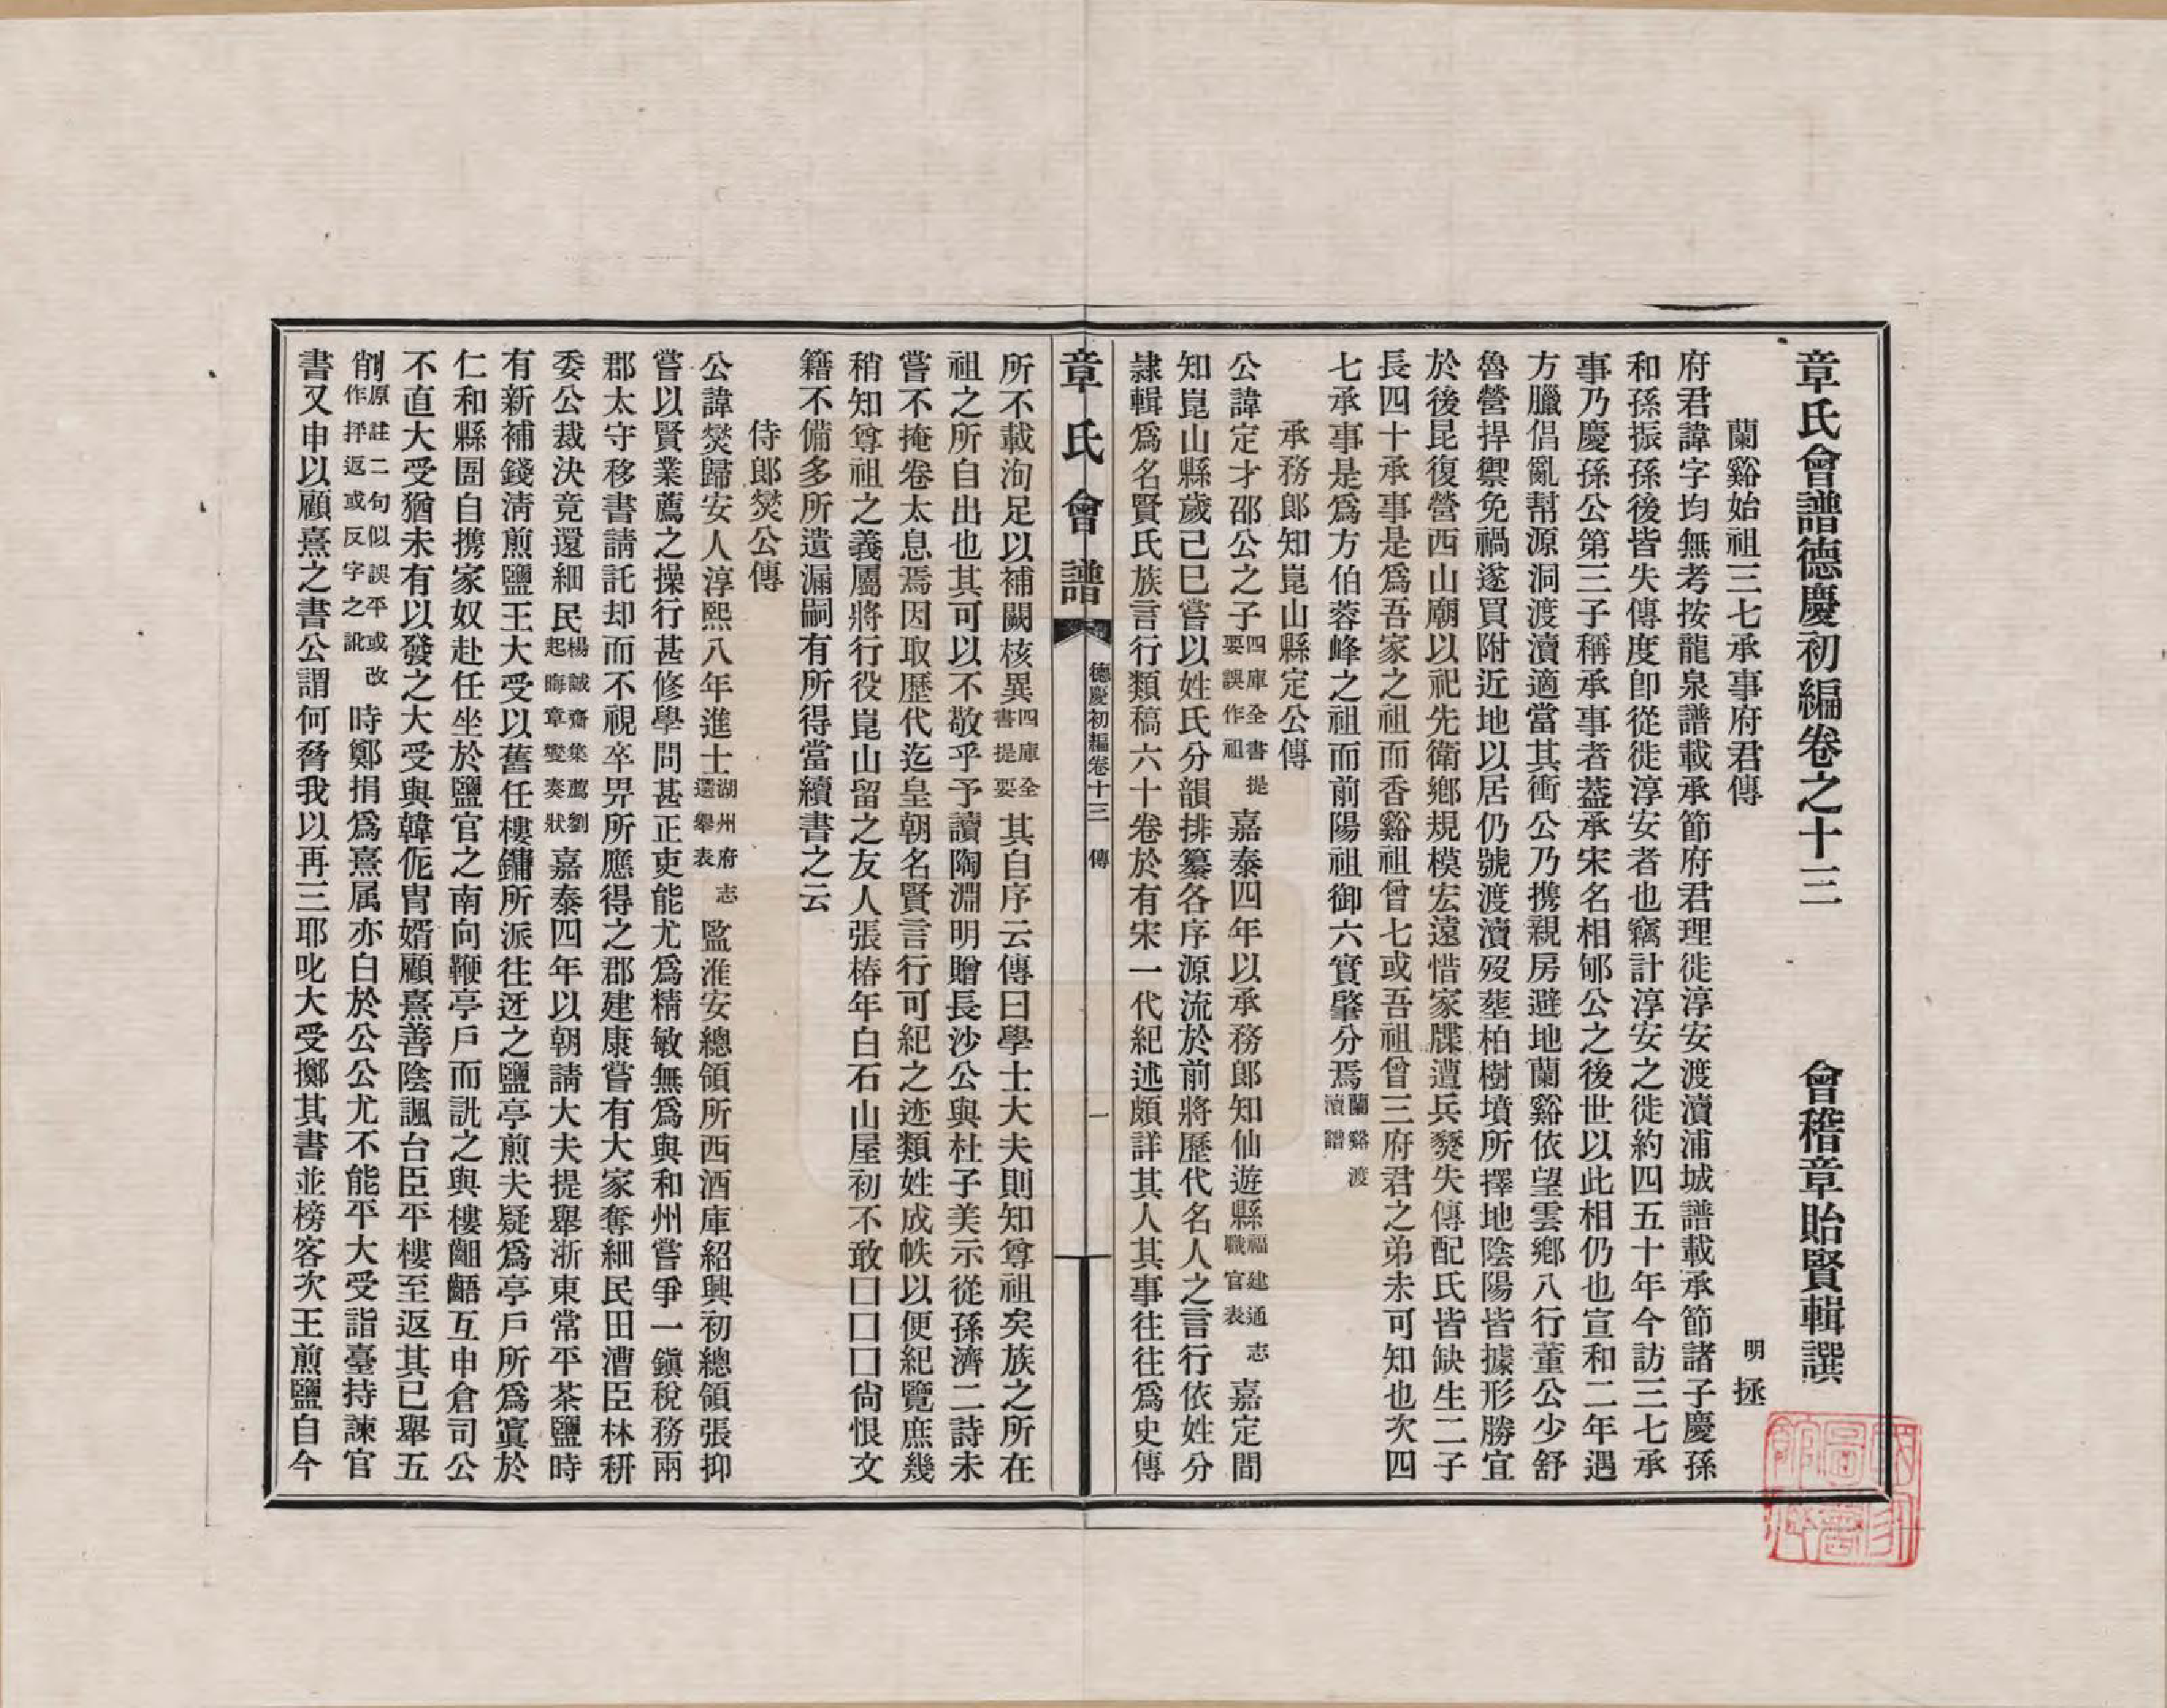 章氏會譜德慶初編卷之十三　會稽章貽賢輯譔
蘭谿始祖三七承事府君傳　明　拯
府君諱字均無考按龍泉譜載承節府君理徙淳安渡瀆浦城譜載承節諸子慶孫
和孫振孫後皆失傳度卽從徙淳安者也竊計淳安之徙約四五十年今訪三七承
事乃慶孫公第三子稱承事者蓋承宋名相郇公之後世以此相仍也宣和二年遇
方臘倡亂幫源洞渡瀆適當其衝公乃携親房避地蘭谿依望雲鄉八行董公少舒
魯營捍禦免禍遂買附近地以居仍號渡瀆歿塟柏樹墳所擇地陰陽皆據形勝宜
於後昆復營西山廟以祀先衛鄉規模宏遠惜家牒遭兵燹失傳配氏皆缺生二子
長四十承事是爲吾家之祖而香谿祖曾七或吾祖曾三府君之弟未可知也次四
七承事是爲方伯蓉峰之祖而前陽祖御六實肇分焉蘭谿渡瀆譜
承務郎知崑山縣定公傳
公諱定才邵公之子四庫全書提要誤作祖嘉泰四年以承務郎知仙遊縣福建通志職官表嘉定間
知崑山縣歲己巳嘗以姓氏分韻排纂各序源流於前將歷代名人之言行依姓分
隸輯爲名賢氏族言行類稿六十卷於有宋一代紀述頗詳其人其事往往爲史傳
章氏會譜　德慶初編卷十三　傳　一
所不載洵足以補闕核異四庫全書提要其自序云傳曰學士大夫則知尊祖矣族之所在
祖之所自出也其可以不敬乎予讀陶淵明贈長沙公與杜子美示從孫濟二詩未
嘗不掩卷太息焉因取歷代迄皇朝名賢言行可紀之迹類姓成帙以便紀覽庶幾
稍知尊祖之義屬將行役崑山留之友人張椿年白石山屋初不敢囗囗囗尙恨文
籍不備多所遺漏嗣有所得當續書之云
侍郎燮公傳
公諱燮歸安人淳熙八年進士湖州府志選舉表監淮安總領所西酒庫紹興初總領張抑
嘗以賢業薦之操行甚修學問甚正吏能尤爲精敏無爲與和州嘗爭一鎭稅務兩
郡太守移書請託却而不視卒畀所應得之郡建康嘗有大家奪細民田漕臣林枅
委公裁決竟還細民楊誠齋集薦劉起晦章燮奏狀嘉泰四年以朝請大夫提舉浙東常平茶鹽時
有新補錢淸煎鹽王大受以舊任樓鏞所派往迓之鹽亭煎夫疑爲亭戶所爲寘於
仁和縣圄自携家奴赴任坐於鹽官之南向鞭亭戶而詵之與樓齟齬互申倉司公
不直大受猶未有以發之大受與韓侂冑婿顧熹善陰諷台臣平樓至返其已舉五
削原註二句似誤平或改作抨返或反字之訛時鄭捐爲熹属亦白於公公尤不能平大受詣臺持諫官
書又申以顧熹之書公謂何脅我以再三耶叱大受擲其書並榜客次王煎鹽自今